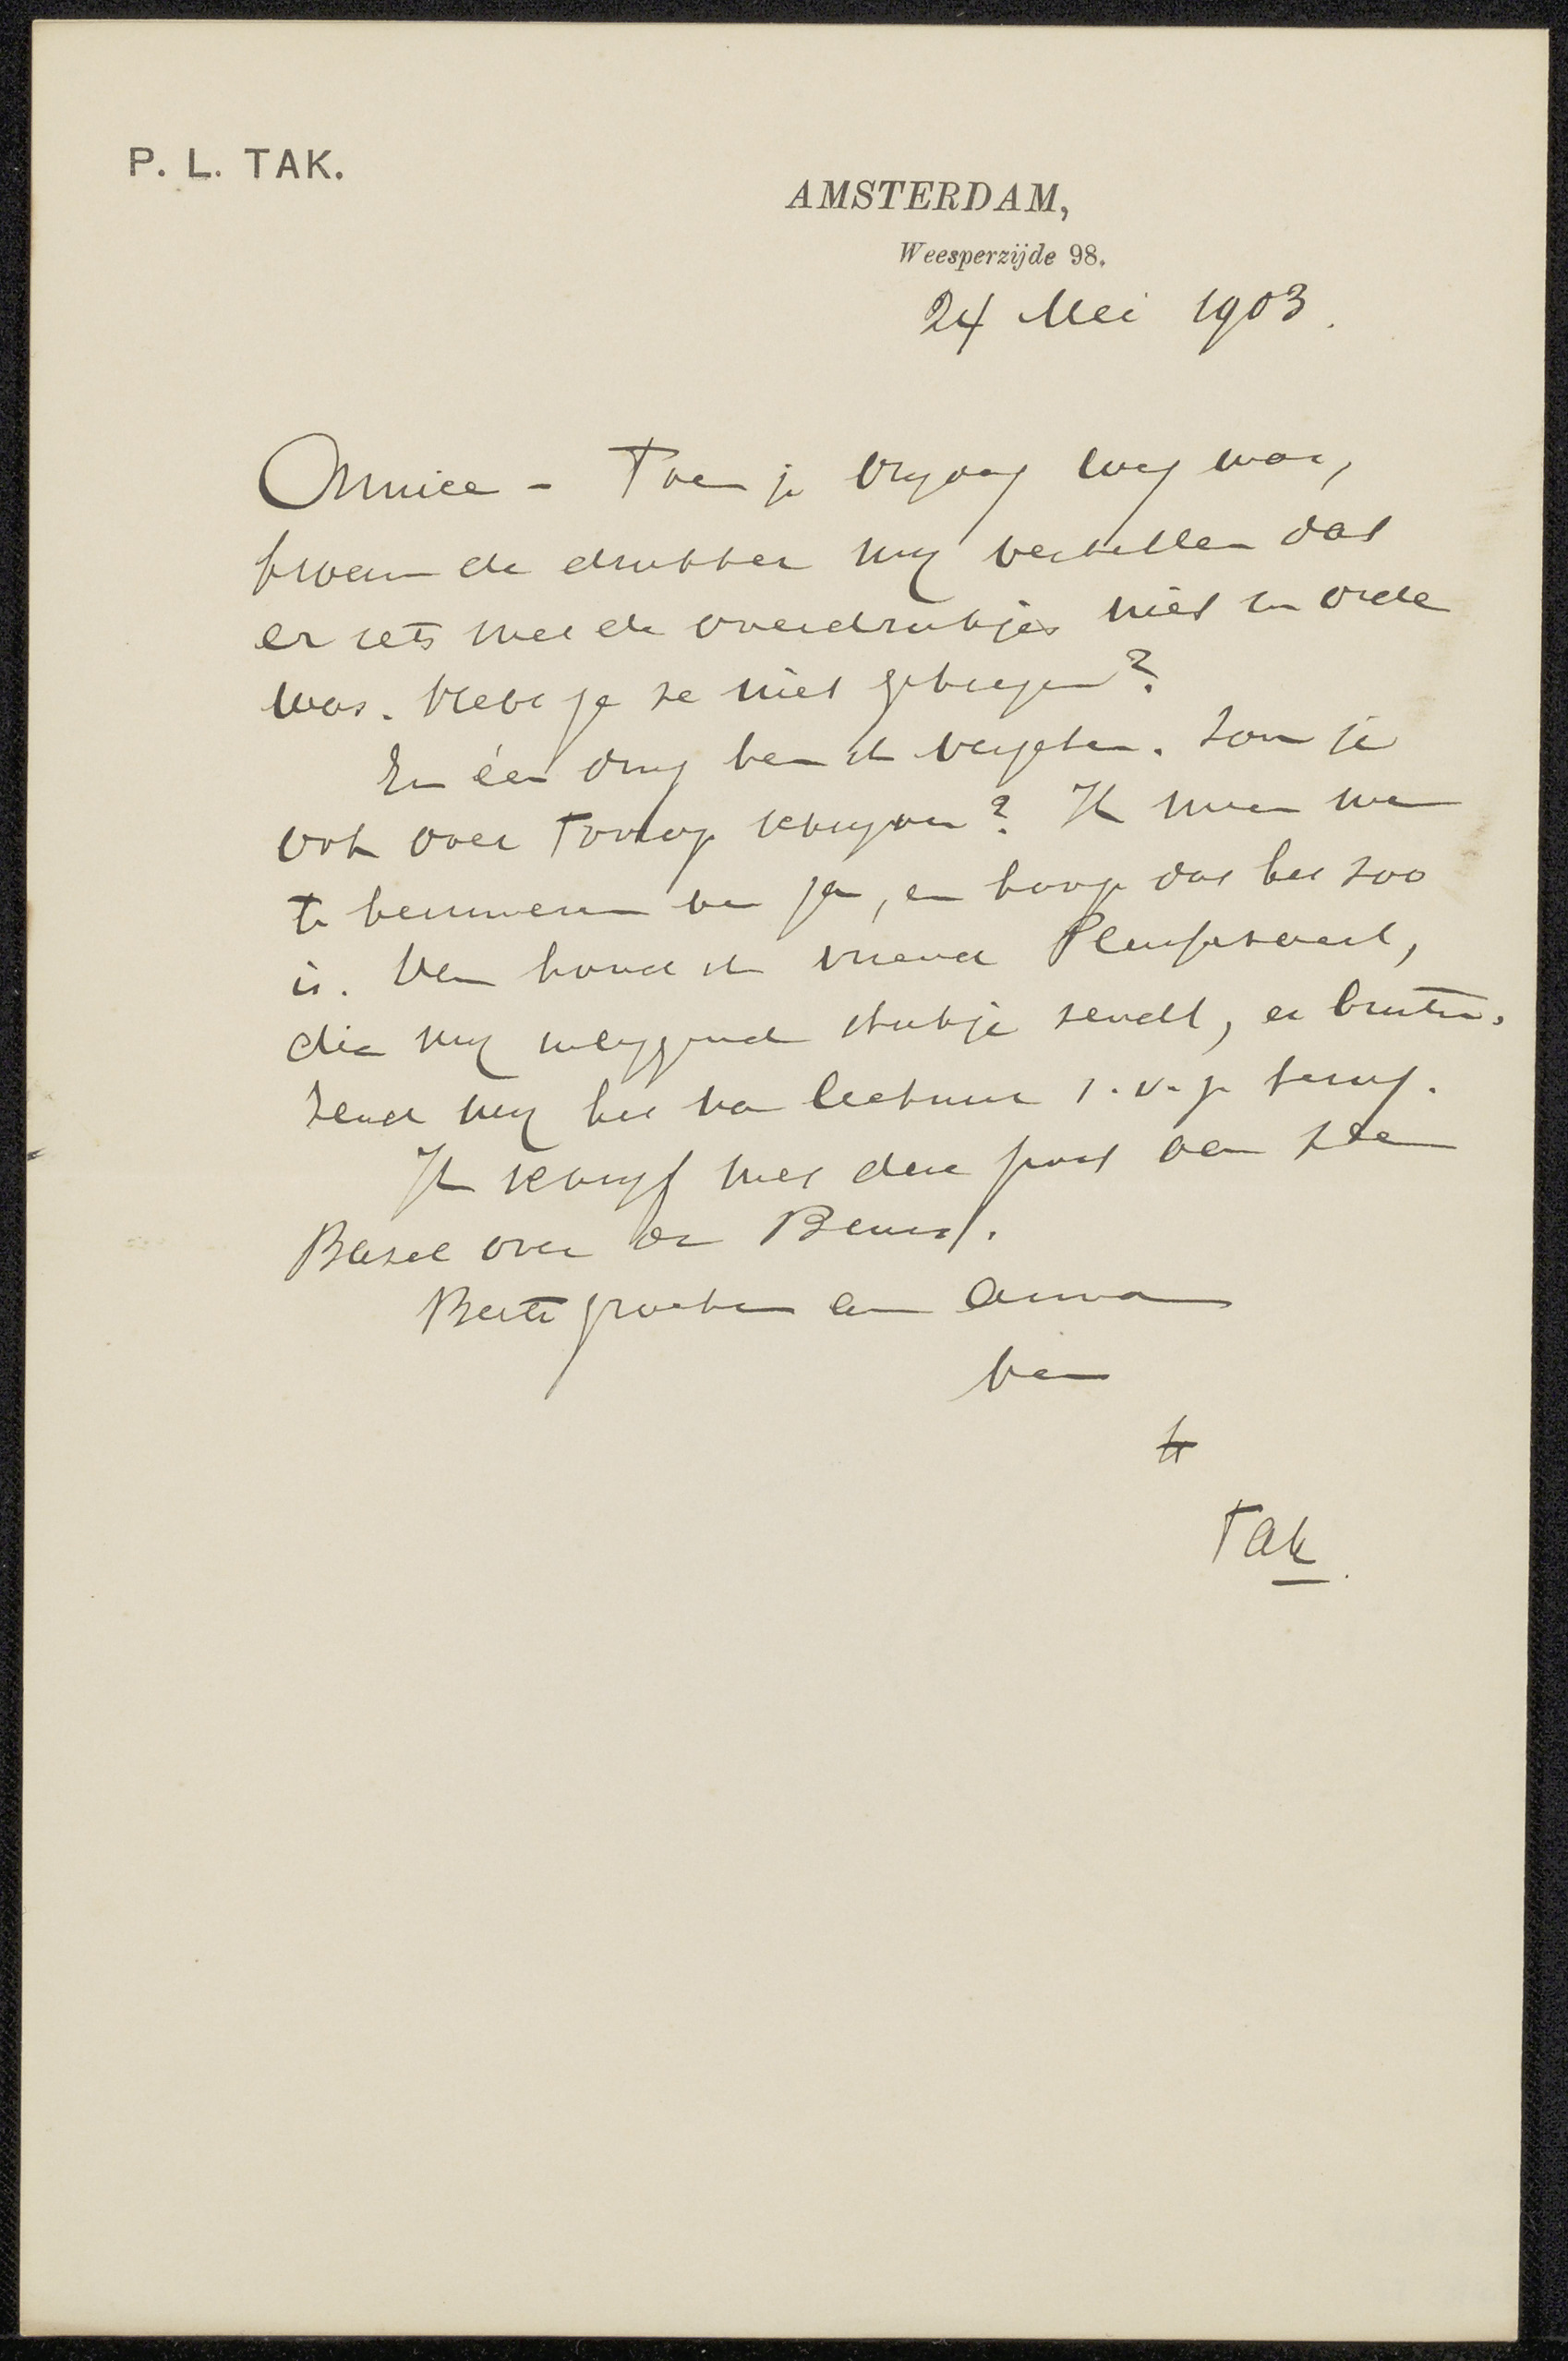 P. L. TAK.
AMSTERDAM,
Weesperzijde 98.
24 Mei 1903.
Amice - Toen je Vrydag weg was,
kwam de drukker my vertellen dat
er iets met de overdrukjes niet in orde
was. Hebt je ze niet gekregen?
En één ding ben ik vergeten. Zou je
ook over Toorop schryven? Ik meen me
te herinneren van ja, en hoop dat het zoo
is. Dan houd ik vriend Plasschaert,
die my inliggend stukje zendt, er buiten.
Zend my het na lectuur s.v.p. terug.
Ik schryf met deze post aan
over de Beurs.
Beste groeten aan Anna
van
Tak.